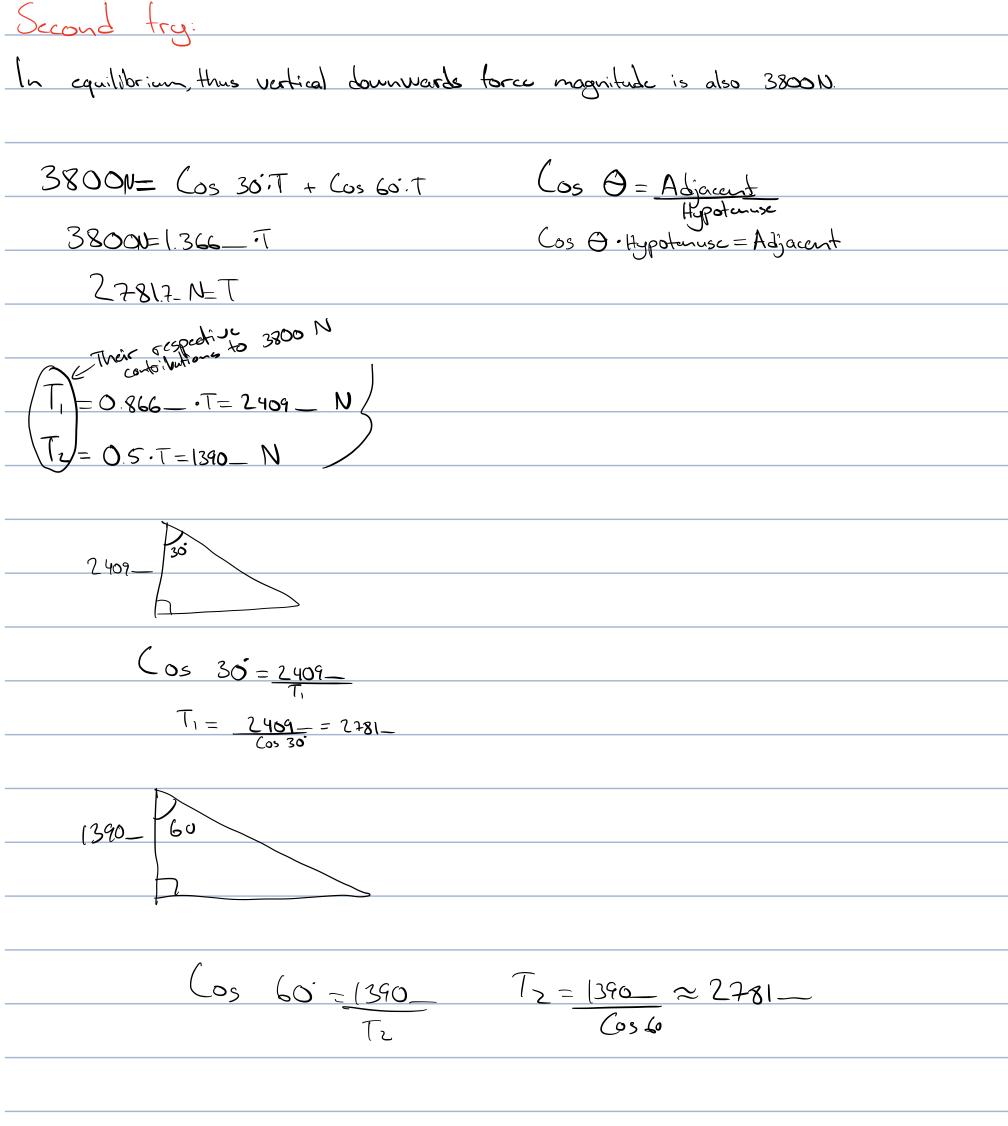 Second try:
In equilibrium, thus vertical downwards force magnitude is also 3800N.
3800N = Cos 30°·T + Cos 60°·T
Cos θ = Adjacent / Hypotenuse
3800N = 1.366_ ·T
Cos θ · Hypotenuse = Adjacent
2781.7_ N = T
Their respective contributions to 3800 N
T₁ = 0.866_ ·T = 2409_ N
T₂ = 0.5·T = 1390_ N
30°
2409_
Cos 30° = 2409_ / T₁
T₁ = 2409_ / Cos 30° = 2781_
1390_ 60
Cos 60° = 1390_ / T₂
T₂ = 1390_ / Cos 60 ≈ 2781_